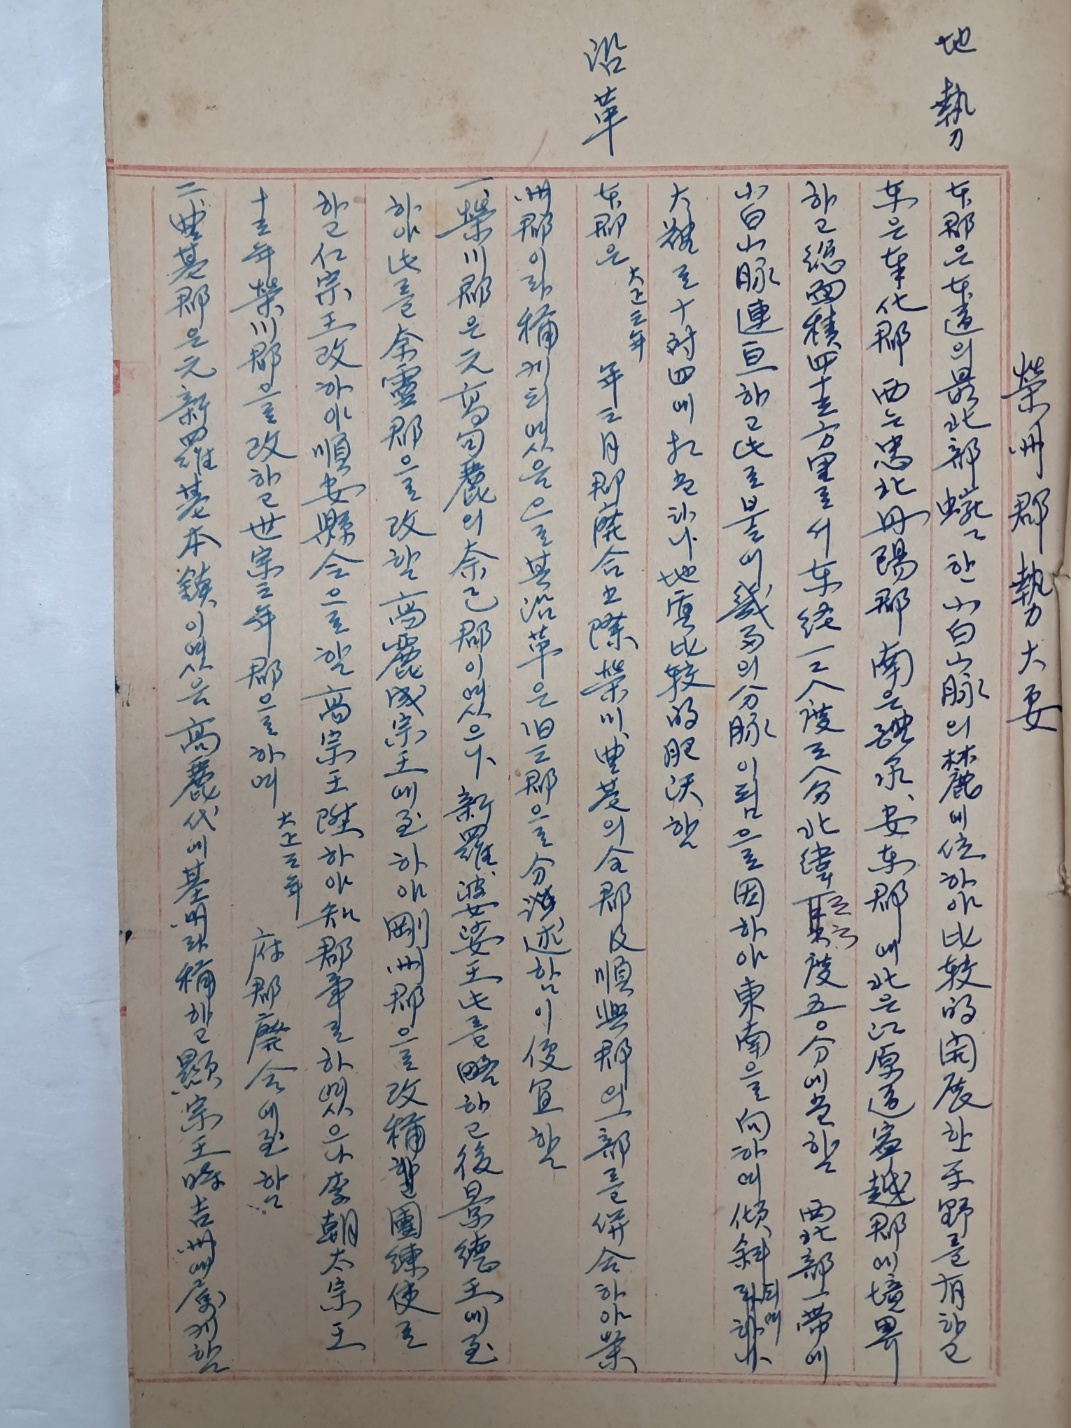 榮州郡勢大要
地勢
本郡은 本道의 最北部 蟠距한 小白山脉의 麓에 位하야 比較的 開展한 平野를 有하고
東은 奉化郡 西는 忠北丹陽郡 南은 醴泉、安東郡에 北은 江原道寧越郡에 境界
하고 總面積四十三方里로서 東經一二八度三八分北緯三六度五〇分에 當함 西北部一帶에
小白山脉連亘하고 此로붙어 幾多의 分脉이됨으로 因하야 東南으로 向하며 傾斜되며
大槪로 十対四에 相當하나 地質比較的肥沃함
沿革
本郡은 大正三年 年三月郡廢合之際榮川、豊基의 全郡及順興郡의 一部를 倂合하야 榮
州郡이라 稱게되엿음으로 其沿革은 旧三郡으로 分하야 述함이 便宜함
一、榮川郡은 元高句麗의 奈已郡이엿으나 新羅、婆娑王此를 略하고 後景德王에 至
하야 此를 奈靈郡으로 改함 高麗成宗王에 至하야 剛州郡으로 改稱 團練使로
하고 仁宗王改하야 順安縣令으로 함 高宗王陞하야 知郡事로 하엿으나 李朝太宗王
十三年榮川郡으로 改하고 世宗三年郡으로 하며 大正三年 府郡廢合에 至함
二、豊基郡은 元新羅基木鎭이엿으나 高麗代에 基州라 稱하고 顯宗王時吉州에 屬게함